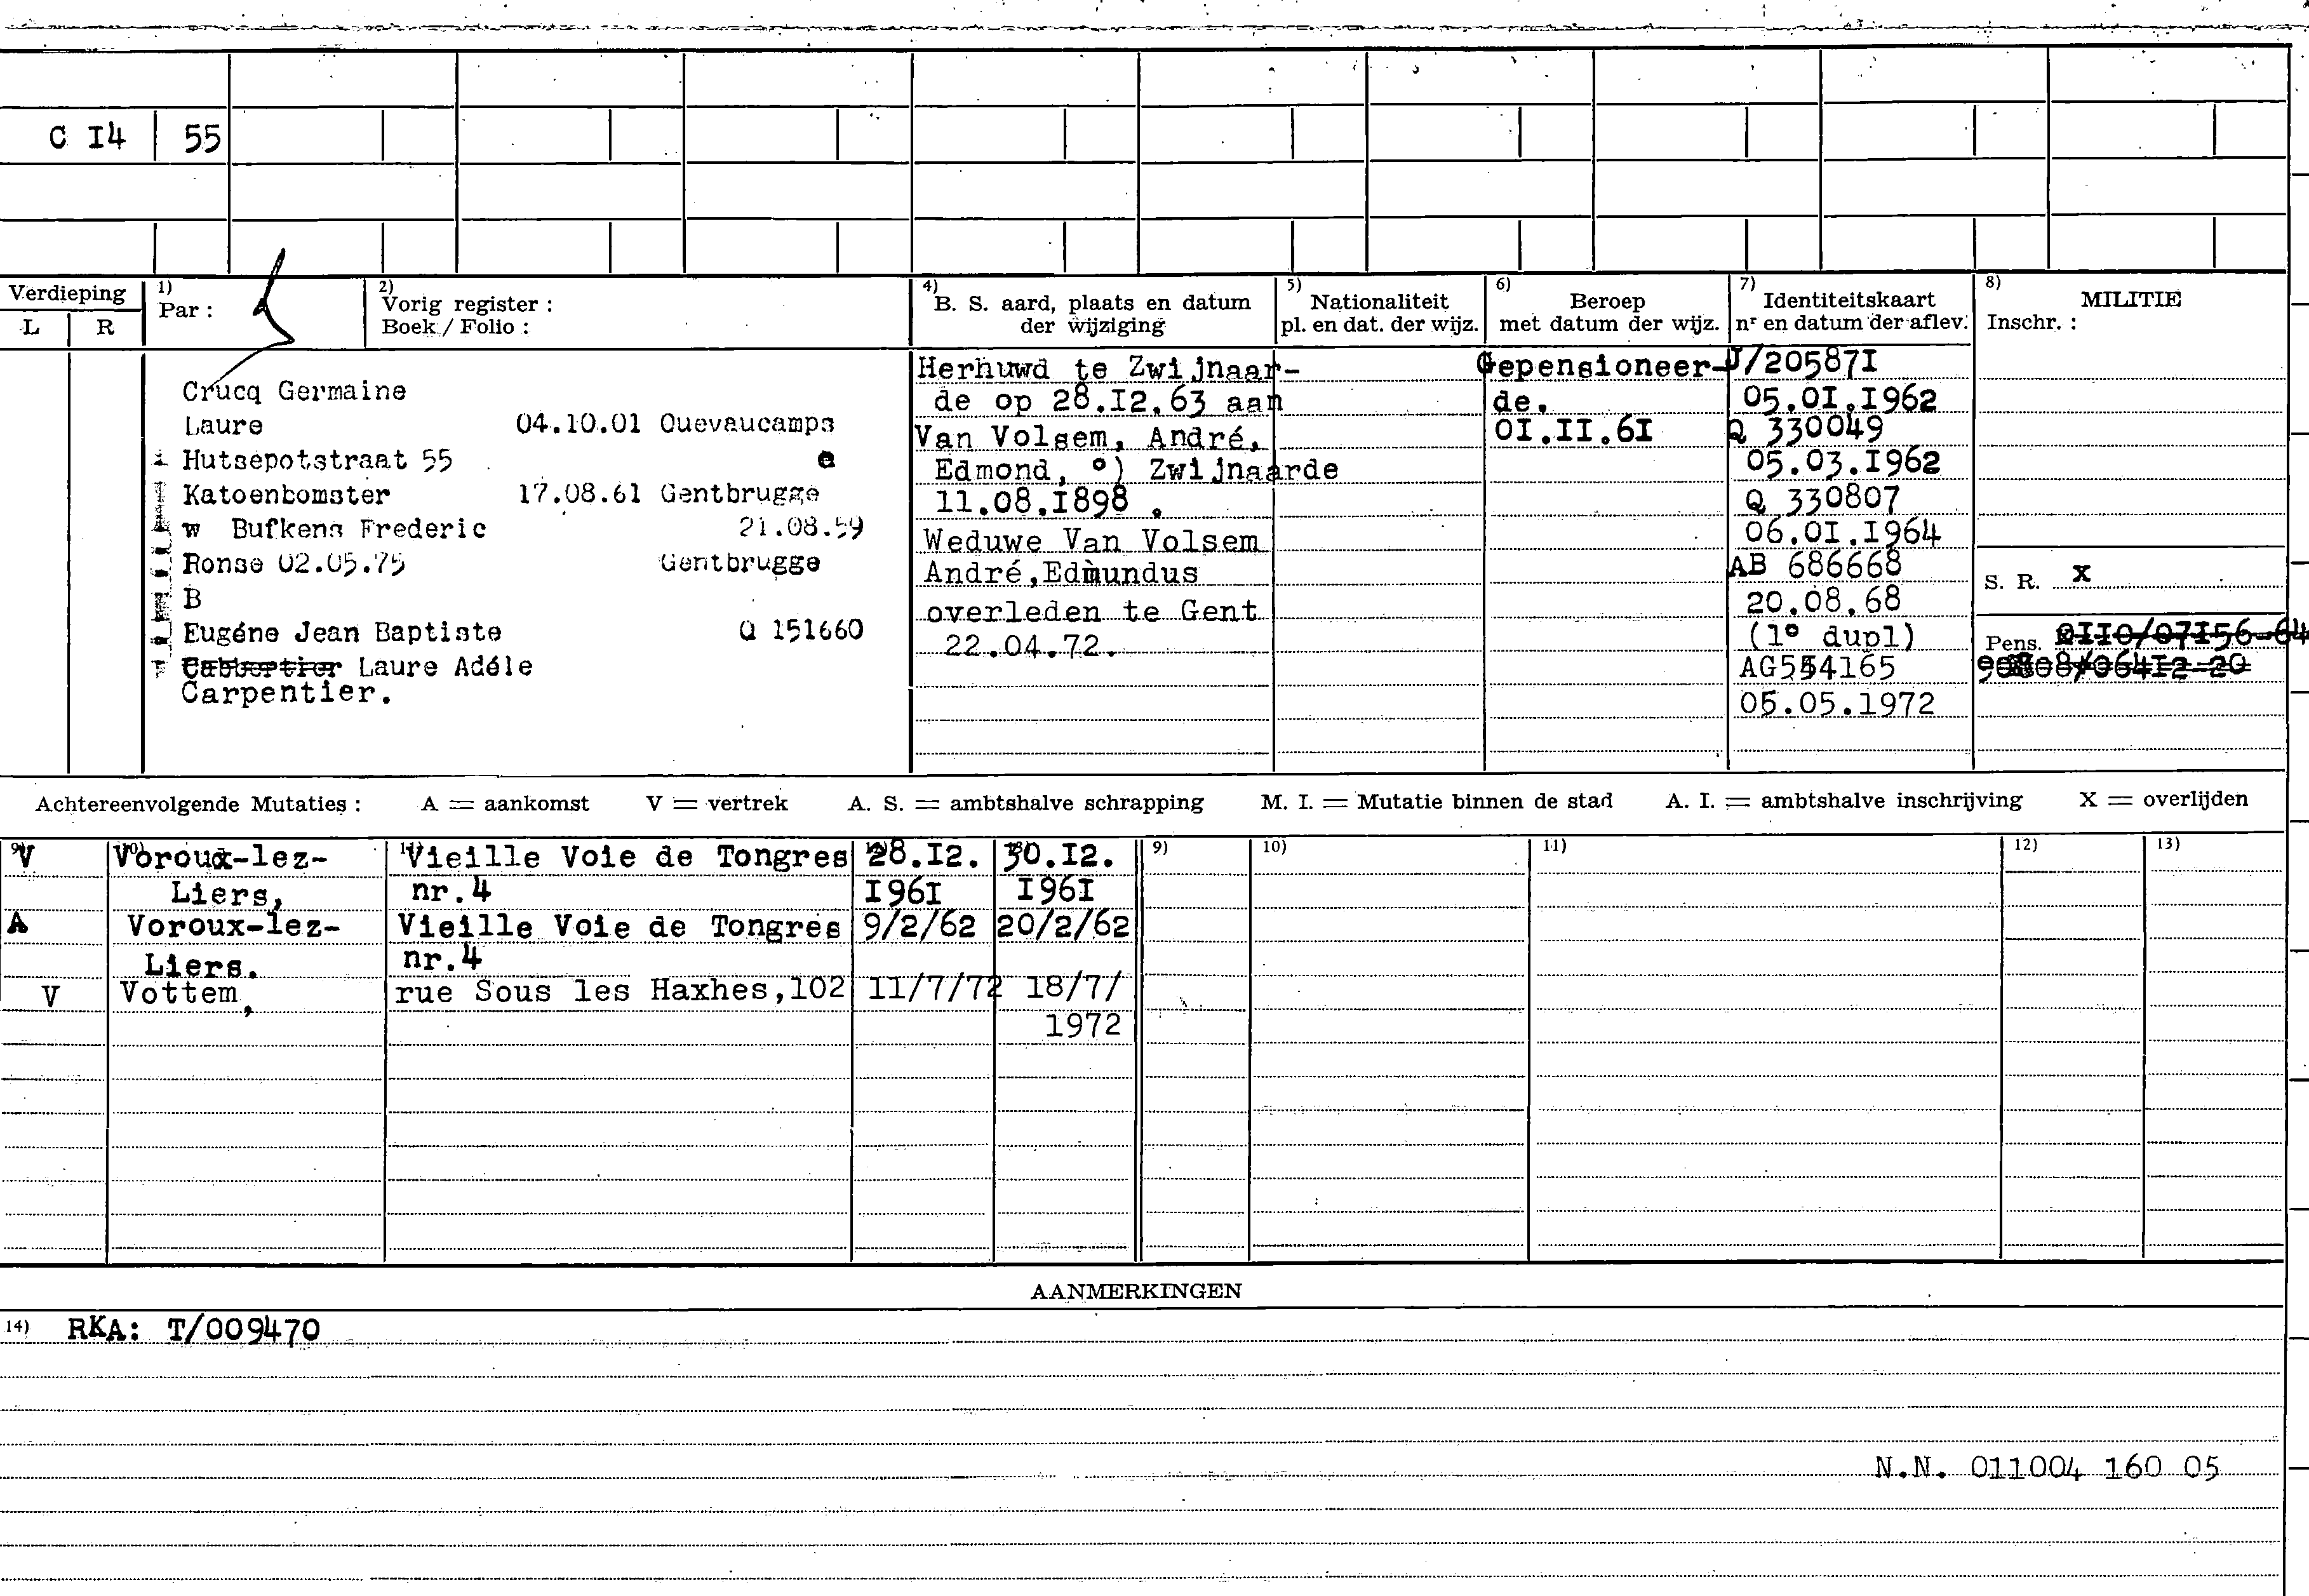 C I4 55
Verdieping
L R
1) Par :
2) Vorig register :
Boek / Folio :
4) B. S. aard, plaats en datum
der wijziging
5) Nationaliteit
pl. en dat. der wijz.
6) Beroep
met datum der wijz.
7) Identiteitskaart
nr en datum der aflev.
8) MILITIE
Inschr. :
Crucq Germaine
Laure 04.10.01 Quevaucamps
Hutsepotstraat 55
Katoenbomster 17.08.61 Gentbrugge
w Bufkens Frederic 21.08.59
Ronse 02.05.75 Gentbrugge
B
Eugéne Jean Baptiste Q 151660
Laure Adéle
Carpentier.
Herhuwd te Zwijnaar-
de op 28.I2.63 aan
Van Volsem, André,
Edmond, °) Zwijnaarde
11.08.I898 .
Weduwe Van Volsem
André,Edmundus
overleden te Gent
22.04.72.
Gepensioneer-
de.
OI.II.6I
J/20587I
05.OI.I962
Q 330049
05.03.I962
Q 330807
06.OI.I964
AB 686668
20.08.68
(1° dupl)
AG554165
05.05.1972
S. R. X
Pens. 0II0/07I56-64
Achtereenvolgende Mutaties : A = aankomst V = vertrek A. S. = ambtshalve schrapping M. I. = Mutatie binnen de stad A. I. = ambtshalve inschrijving X = overlijden
9) 10) 11) 12) 13)
V Voroux-lez- Vieille Voie de Tongres 28.I2. 30.I2.
Liers, nr.4 I96I I96I
A Voroux-lez- Vieille Voie de Tongres 9/2/62 20/2/62
Liers. nr.4
V Vottem, rue Sous les Haxhes,102 11/7/72 18/7/
1972
AANMERKINGEN
14) RKA: T/009470
N.N. 011004 160 05